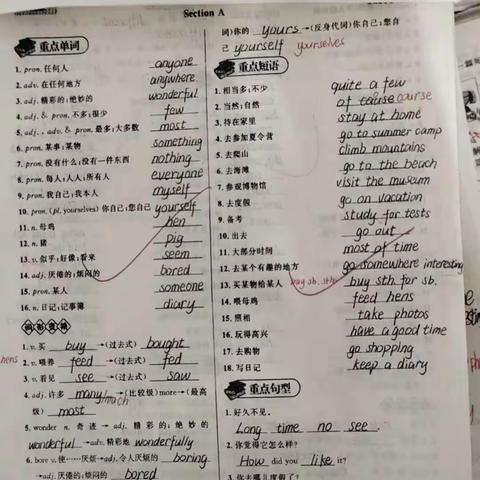 Section A
重点单词
1. pron. 任何人 anyone
2. adv. 在任何地方 anywhere
3. adj. 精彩的;绝妙的 wonderful
4. adj. & pron. 不多;很少 few
5. adj.、adv. & pron. 最多;大多数 most
6. pron. 某事;某物 something
7. pron. 没有什么;没有一件东西 nothing
8. pron. 每人;人人;所有人 everyone
9. pron. 我自己;我本人 myself
10. pron. (pl. yourselves) 你自己;您自己 yourself
11. n. 母鸡 hen
12. n. 猪 pig
13. vi. 似乎;好像;看来 seem
14. adj. 厌倦的;烦闷的 bored
15. pron. 某人 someone
16. n. 日记;记事簿 diary
词形变换
1. v. 买 buy →(过去式) bought
hens
2. v. 喂养 feed →(过去式) fed
3. v. 看见 see →(过去式) saw
4. adj. 许多 many/much →(比较级) more→(最高
级) most
5. wonder n. 奇迹→ adj. 精彩的;绝妙的
wonderful →adv. 精彩地 wonderfully
6. bore v. 使……厌烦→adj. 令人厌烦的 boring
→adj. 厌倦的;烦闷的 bored
词)你的 yours →(反身代词)你自己;您自
己 yourself yourselves
重点短语
1. 相当多;不少 quite a few
2. 当然;自然 of course course
3. 待在家里 stay at home
4. 去参加夏令营 go to summer camp
5. 去爬山 climb mountains
6. 去海滩 go to the beach
7. 参观博物馆 visit the museum
8. 去度假 go on vacation
9. 备考 study for tests
10. 出去 go out
11. 大部分时间 most of time
12. 去某个有趣的地方 go somewhere interesting
13. 买某物给某人 buy sb. sth. buy sth. for sb.
14. 喂母鸡 feed hens
15. 照相 take photos
16. 玩得高兴 have a good time
17. 去购物 go shopping
18. 写日记 keep a diary
重点句型
1. 好久不见。
Long time no see.
2. 你觉得它怎么样?
How did you like it?
3. 你去哪儿度假了?